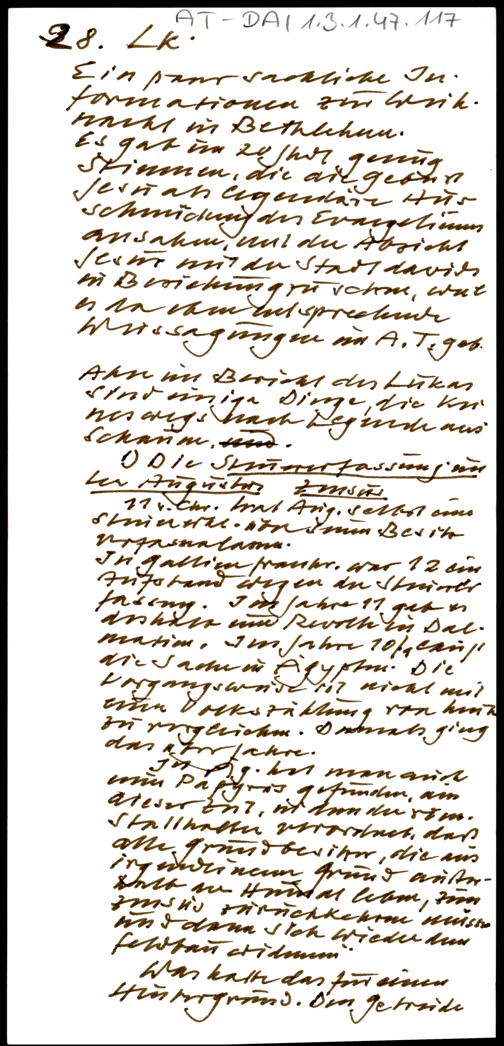 AT-DA| 1.3.1.47.117
28. Lk.
Ein paar sachliche In-
formationen zur Weih-
nacht in Bethlehem.
Es gab im 20 Jhdt genug
Stimmen, die die Geburt
Jesu als legendäre Aus
schmückung des Evangeliums
ansahen, mit der Absicht
Jesus mit der Stadt davids
in Beziehung zu setzen, weil
es da eben entsprechende
Weissagungen im A.T. geb.
Aber im Bericht des Lukas
sind einige Dinge, die kei
neswegs nach Legende aus
schauen.
1) Die Steuererfassung un
ter Augustus. Zensus
11 v. Chr. hat Aug. selbst eine
von seinem Besitz
In Gallien war 12 ein
Aufstand wegen der Steuerer
fassung. Im Jahre 11 gab es
deshalb eine Revolte in Dal-
matien. Im Jahre 10/ läuft
die Sache in Ägypten. Die
Vorgangsweise ist nicht mit
einer Volkszählung von heute
zu vergleichen. Damals ging
das über Jahre.
In Äg. hat man auch
einen Papyrus gefunden, aus
dieser Zeit, in dem der röm.
Statthalter verordnet, daß
alle Grundbesitzer, die aus
irgendeinem Grund außer-
halb der Heimat leben, zum
Zensus zurückkehren müssen
und dann sich wieder dem
Feldbau widmen.
Was hatte das für einen
Hintergrund. Den Getreide